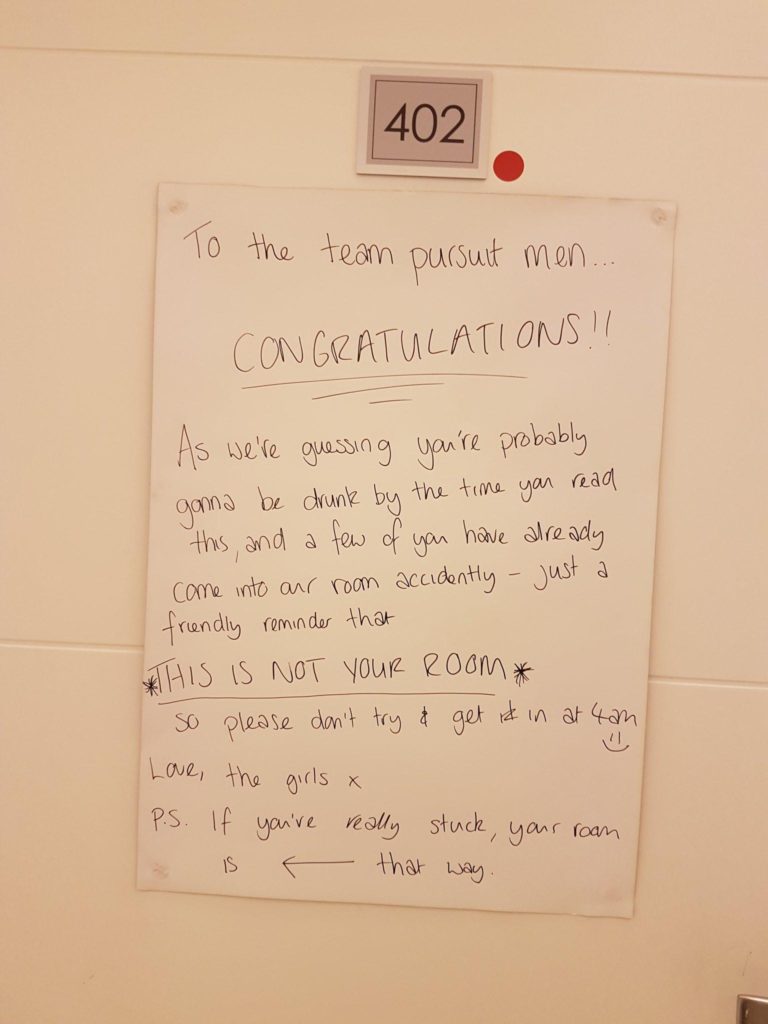 402
To the team pursuit men...
CONGRATULATIONS!!
As we're guessing you're probably
gonna be drunk by the time you read
this, and a few of you have already
come into our room accidently - just a
friendly reminder that
*THIS IS NOT YOUR ROOM*
so please don't try & get in at 4am
Love, the girls x
P.S. If you've really stuck, your room
is ← that way.